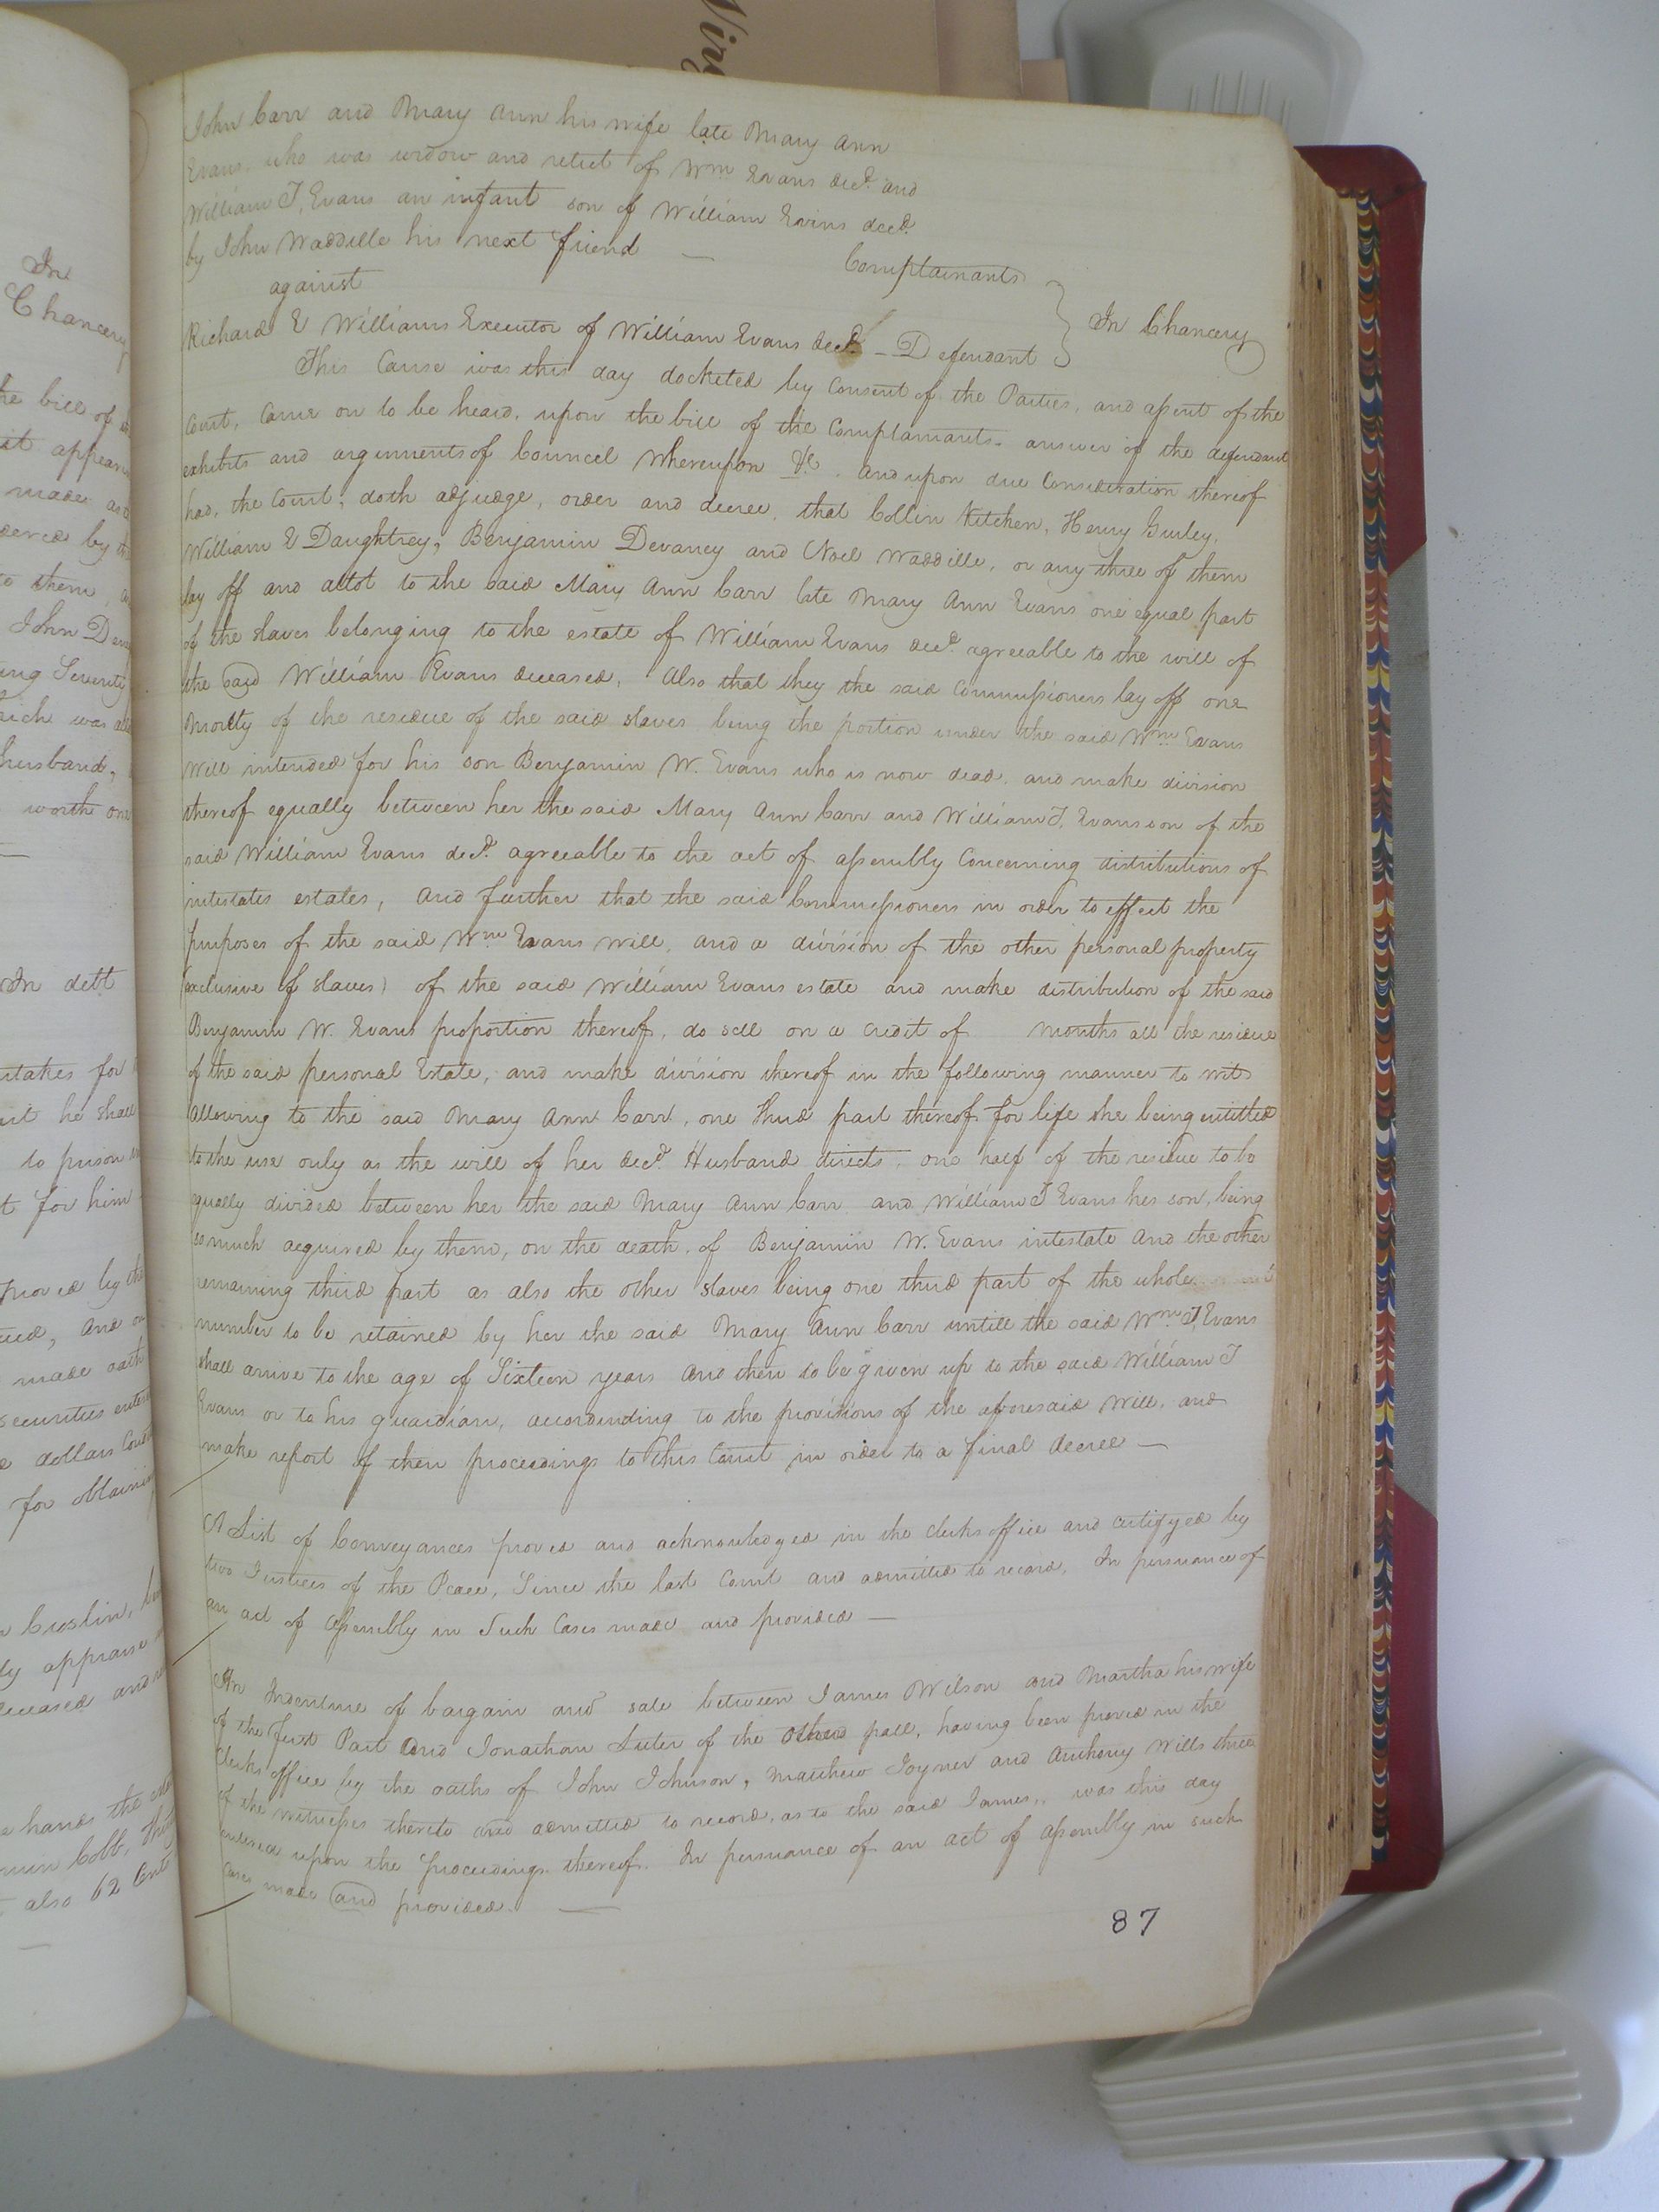 Virg
In
Chancery
the bill of
it appears
made and
dered by th
to them,
John D
ing Seventy
hich was
husband,
worth one
In debt
rtakes for
at he shall
to prison
t for him
proved by the
and
made oath
securities
dollars
for obtaini
appraise
deceased and
hands the
Cobb,
also 62 Cent
John Carr and Mary Ann his wife late Mary Ann
Evans. who was widow and relict of Wm Evans decd. and
William T, Evans an infant son of William Evins decd.
by John Waddille his next friend — Complainants
against
In Chancery
Richard E Williams Executor of William Evans decd. – Defendant
This Cause was this day docketed by Consent of the Parties, and assent of the
Court, Came on to be heard, upon the bill of the Complainants. answer of the defendant
exhibits and arguments of Councel Whereupon &C. and upon due Consideration thereof
had, the Court; doth adjudge, order and decree, that Collin Kitchen, Henry Gurley,
William E Daughtrey, Benjamin Devaney and Noel Waddille, or any three of them
lay off and allot to the said Mary Ann Carr late Mary Ann Evans one equal part
of the slaves belonging to the estate of William Evans decd. agreeable to the will of
the said William Evans deceased, Also that they the said Commissioners lay off one
moiety of the residue of the said slaves being the portion under the said Wm Evans
Will intended for his son Benjamin W. Evans who is now dead. and make division
thereof equally between her the said Mary Ann Carr and William T, Evans son of the
said William Evans decd. agreeable to the act of assembly Concerning distributions of
intestates estates, And further that the said Commissioners in order to effect the
purposes of the said Wm Evans will, and a division of the other personal property
(exclusive of slaves) of the said William Evans estate and make distribution of the said
Benjamin W. Evans proportion thereof, do sell on a credit of months all the residue
of the said personal Estate, and make division thereof in the following manner to wit
Allowing to the said Mary Ann Carr, one third part thereof for life she being entitled
to the use only as the will of her decd. Husband directs, one half of the residue to be
equally divided between her the said Mary Ann Carr and William T Evans her son, being
so much acquired by them, on the death. of Benjamin W. Evans intestate And the other
remaining third part as also the other slaves being one third part of the whole
number to be retained by her the said Mary Ann Carr untill the said Wm T, Evans
shall arrive to the age of Sixteen years And then to be given up to the said William T
Evans or to his guardian, accordinding to the provisions of the aforesaid Will, and
make report of their proceedings to this Court in order to a final decree —
A List of Conveyances proved and acknowledged in the clerks office and certifyed by
two Justices of the Peace, Since the last Court and admitted to record, In pursuance of
an act of Assembly in Such Cases made and provided —
An Indenture of bargain and sale between James Wilson and Martha his wife
of the first Part And Jonathan Luter of the other part, having been proved in the
Clerks office by the oaths of John Johnson, Matthew Joyner and Anthony Wills three
of the witnesses thereto and admitted to record, as to the said James,, was this day
entered upon the proceedings thereof. In pursuance of an act of assembly in such
Cases made and provided. —
87